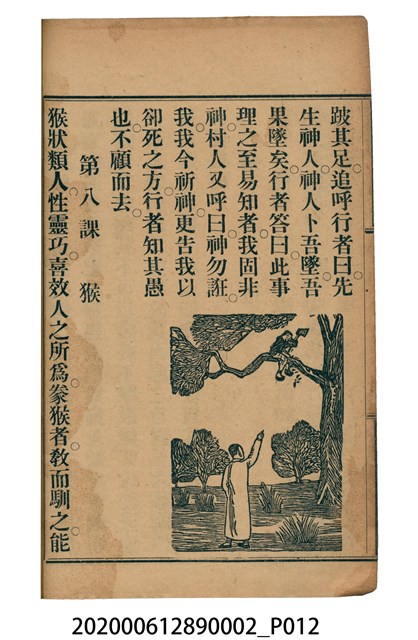 跛其足。追呼行者曰。先
生神人。神人卜吾墜。吾
果墜矣。行者答曰。此事
理之至易知者。我固非
神。村人又呼曰。神勿誑
我。我今祈神。更告我以
卻死之方。行者知其愚
也。不顧而去。
第八課 猴
猴狀類人。性靈巧。喜效人之所爲。豢猴者。敎而馴之。能
202000612890002_P012